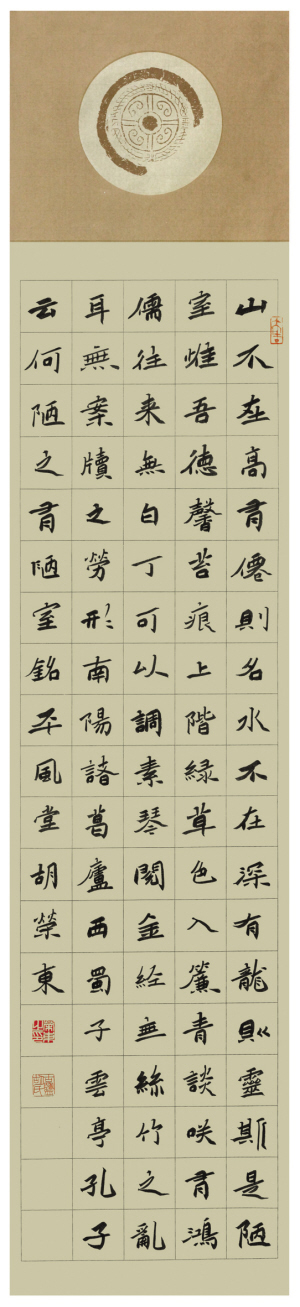 山不在高有僊則名水不在深有龍則靈斯是陋
室惟吾德馨苔痕上階緑草色入簾青談咲有鴻
儒往来無白丁可以調素琴閱金経無絲竹之亂
耳無案牘之勞形南陽諸葛廬西蜀子雲亭孔子
云何陋之有陋室銘平風堂胡榮東